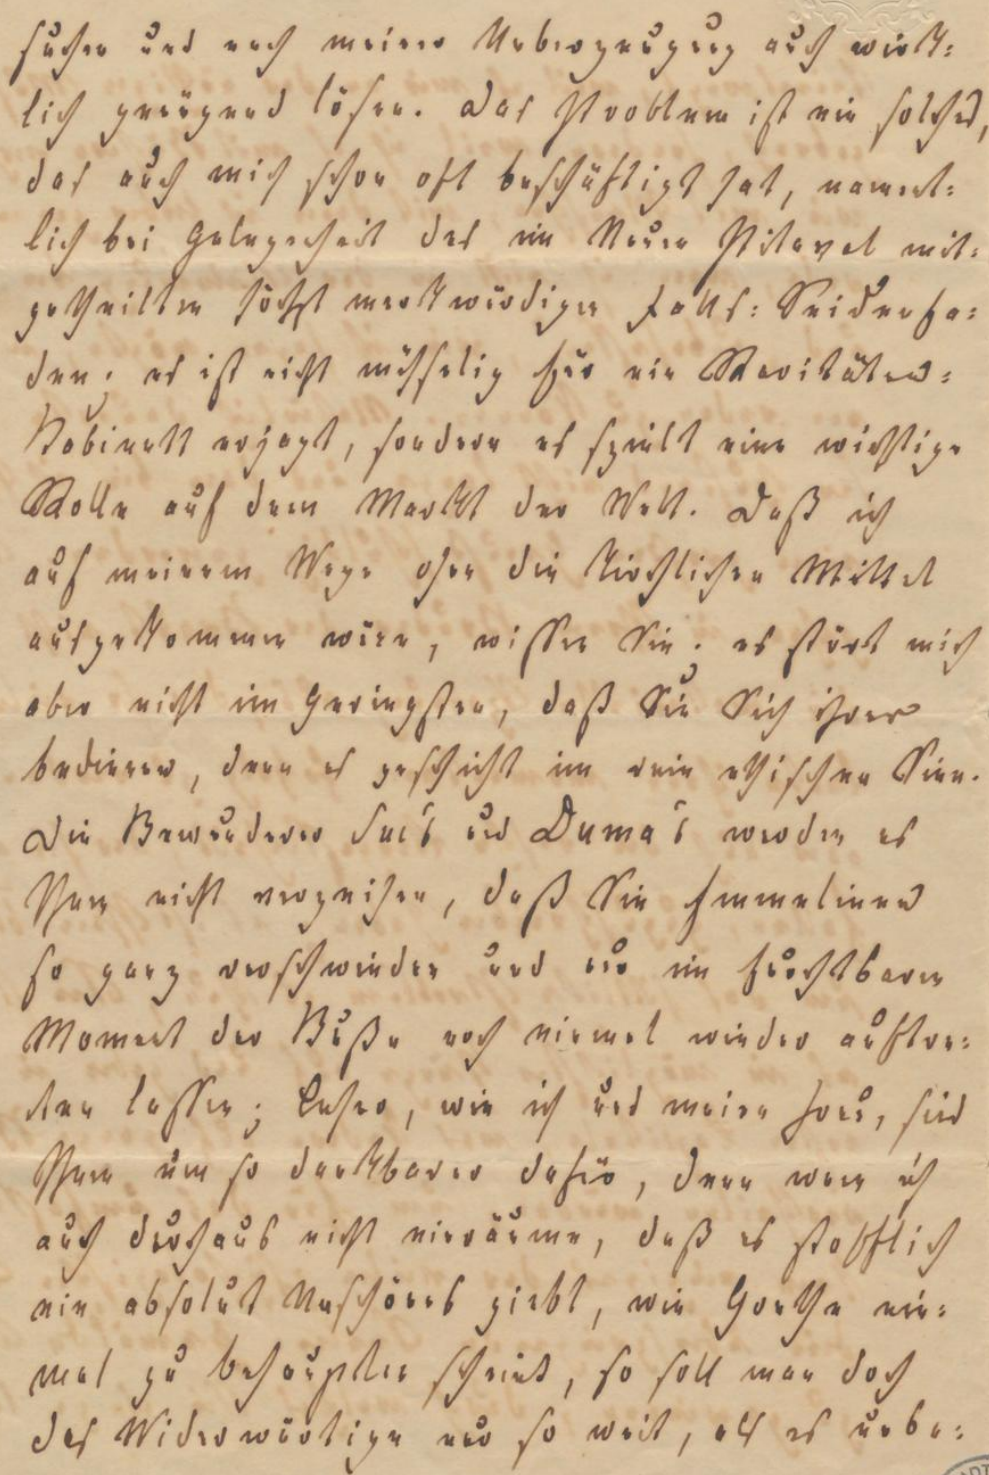 suchen und nach meiner Ueberzeugung auch wirk=
lich genügend lösen. Das Problem ist ein solches,
das auch mich schon oft beschäftigt hat, nament=
lich bei Gelegenheit des im Neuen Pitaval mit=
getheilten höchst merkwürdigen Falls: Seidenfa=
den; es ist nicht mühselig für ein Raritäten=
Kabinett erjagt, sondern es spielt eine wichtige
Rolle auf dem Markt der Welt. Daß ich
auf meinem Wege ohne die kirchlichen Mittel
ausgekommen wäre, wissen Sie; es stört mich
aber nicht im Geringsten, daß Sie Sich ihrer
bedienen, denn es geschieht im rein ethischen Sinn.
Die Bewunderer Sue's und Duma's werden es
Ihnen nicht verzeihen, daß Sie Emmelinen
so ganz verschwinden und nur im furchtbaren
Moment der Buße noch einmal wieder auftre=
ten lassen; Leser, wie ich und meine Frau, sind
Ihnen um so dankbarer dafür, denn wenn ich
auch durchaus nicht einräume, daß es stofflich
ein absolut Unschönes giebt, wie Goethe ein=
mal zu behaupten scheint, so soll man doch
das Widerwärtige nur so weit, als es unbe=